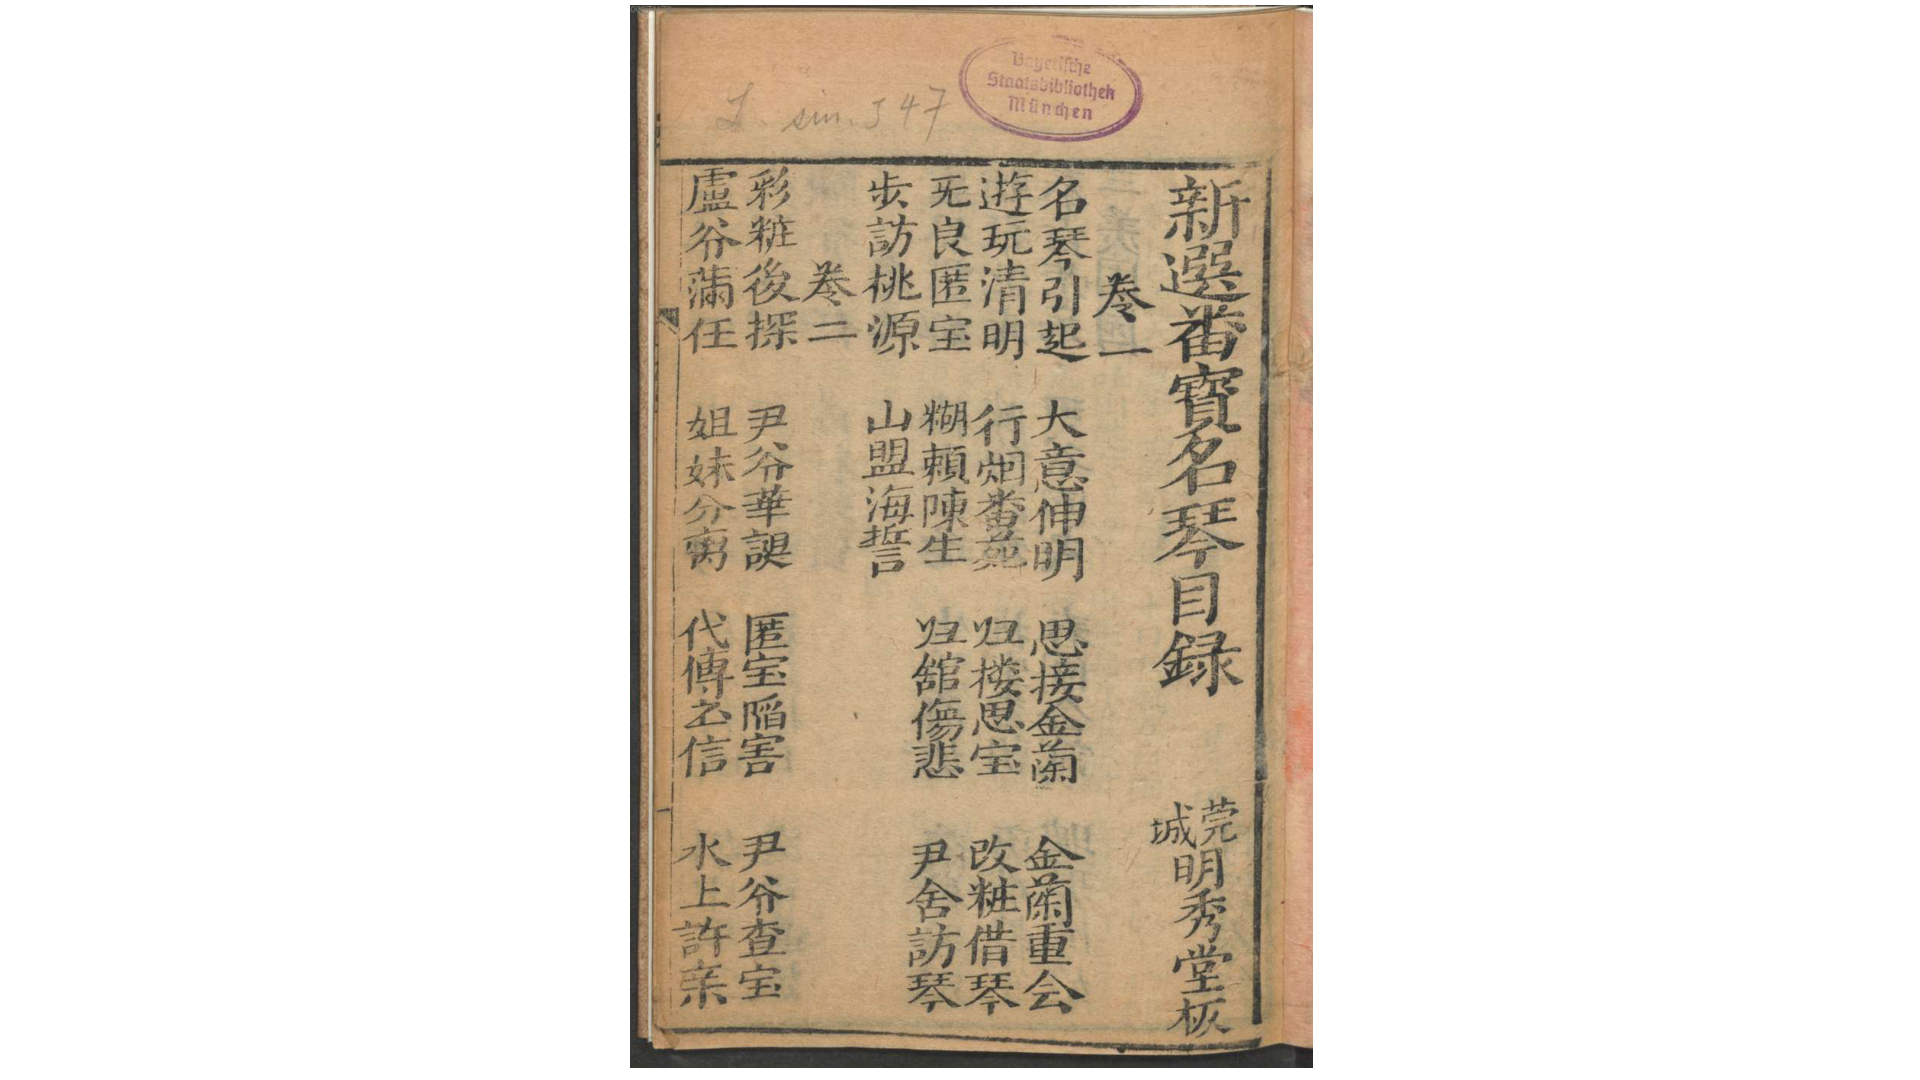 L. sin. J 47
Bayerische
Staatsbibliothek
München
新選番寳名琴目録 莞城明秀堂板
卷一
名琴引起 大意伸明 思接金蘭 金蘭重会
遊玩清明 行烟番苑 归楼思宝 改粧借琴
旡良匿宝 糊賴陳生 归舘傷悲 尹舍訪琴
步訪桃源 山盟海誓
卷二
彩粧後探 尹爷華誤 匿宝陷害 尹爷查宝
盧爷满任 姐妹分离 代傳玄信 水上許亲